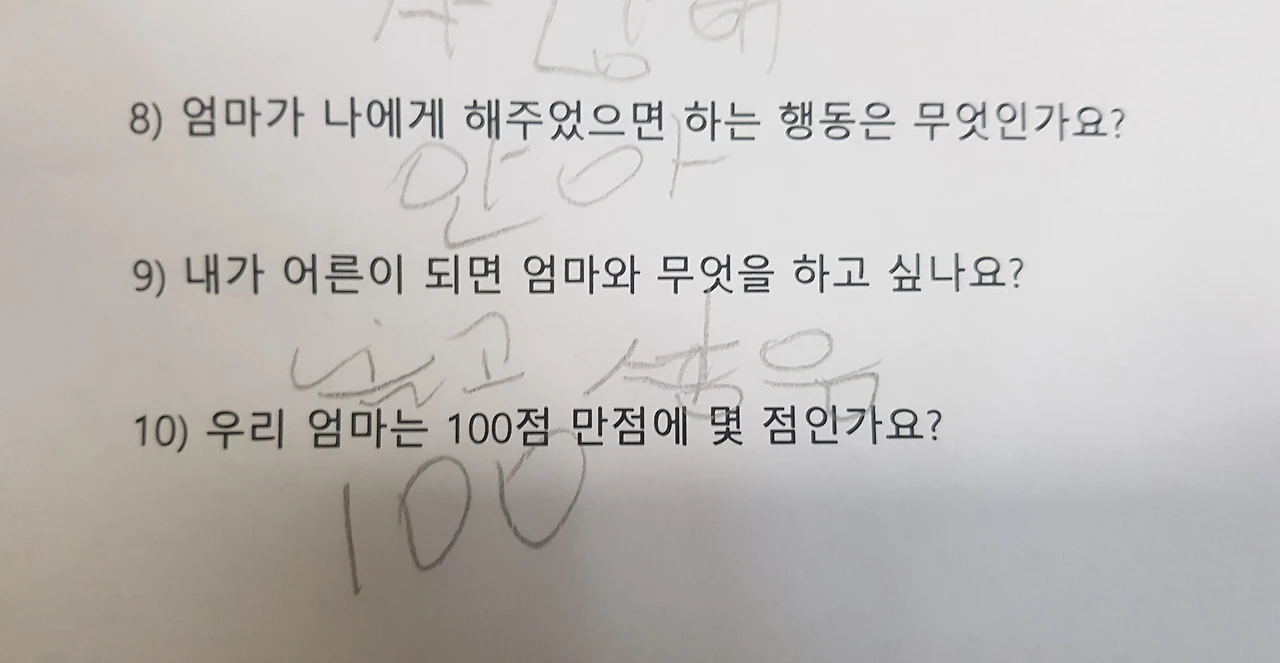 8) 엄마가 나에게 해주었으면 하는 행동은 무엇인가요?
안아
9) 내가 어른이 되면 엄마와 무엇을 하고 싶나요?
놀고
10) 우리 엄마는 100점 만점에 몇 점인가요?
100